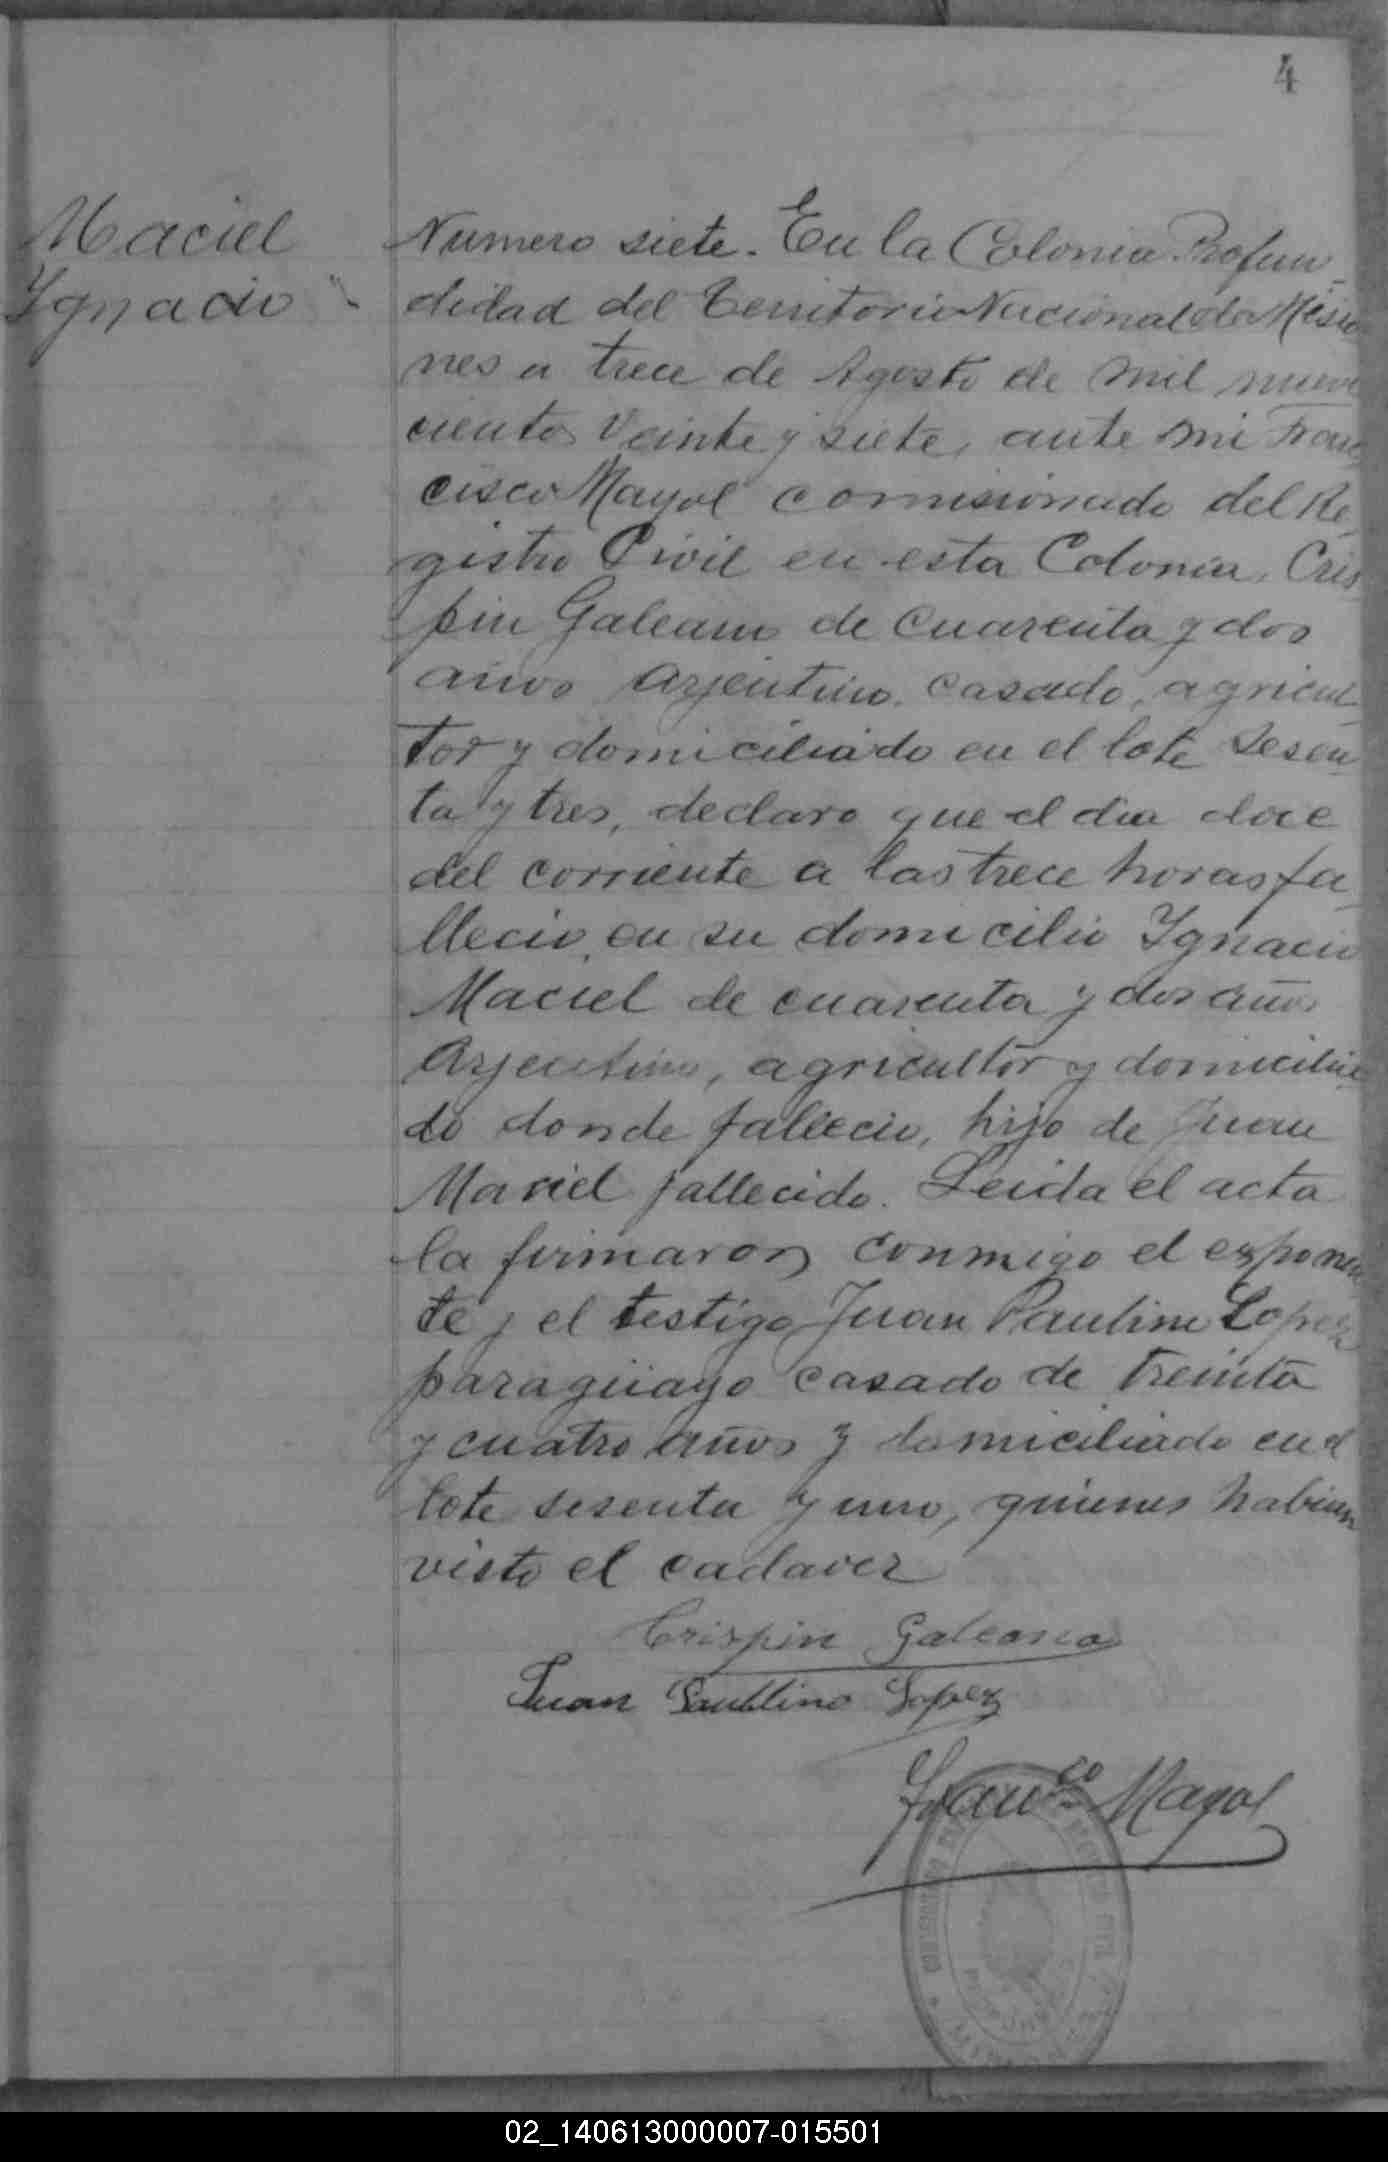 4
Maciel
Ygnacio
Numero siete. En la Colonia Profun
didad del Territorio Nacional de Misio
nes a trece de Agosto de mil nueve
cientos veinte y siete, ante mi Fran
cisco Mayol comisionado del Re
gistro Civil en esta Colonia, Cris
pin Galeano de cuarenta y dos
años arjentino, casado, agricul
tor y domiciliado en el lote sesen
ta y tres, declaro que el dia doce
del corriente a las trece horas fa
llecio en su domicilio Ygnacio
Maciel de cuarenta y dos años
arjentino, agricultor y domicilia
do donde fallecio, hijo de Juan
Maciel fallecido. Leida el acta
la firmaron conmigo el exponen
te y el testigo Juan Paulino Lopez
paraguayo casado de treinta
y cuatro años y domiciliado en el
lote sesenta y uno, quienes habian
visto el cadaver
Crispin Galeano
Juan Paublino Lopez
Franco Mayol
02_140613000007-015501